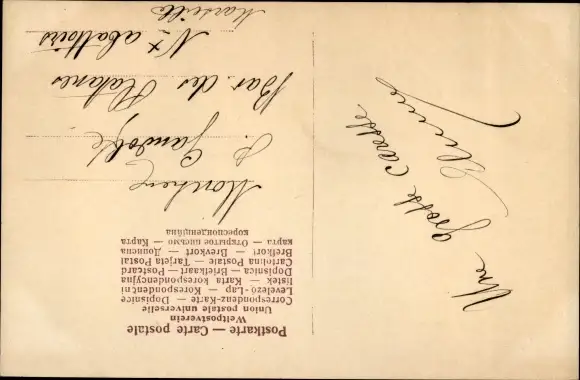 Postkarte — Carte postale
Weltpostverein
Union postale universelle
Correspondenz-Karte — Dopisnice
Levelező-Lap — Korespondent ní
lístek — Karta korespondencyjna
Dopisnica — Briefkaart — Postcard
Cartolina Postale — Tarjeta Postal
Brefkort — Brevkort — Дописна
карта — Открытое письмо — Карта
кореспонденцiйна
Monsieur
P. Gandolfe
Bar des Platanes
Nx abattoirs
Marseille
Une grosse caresse